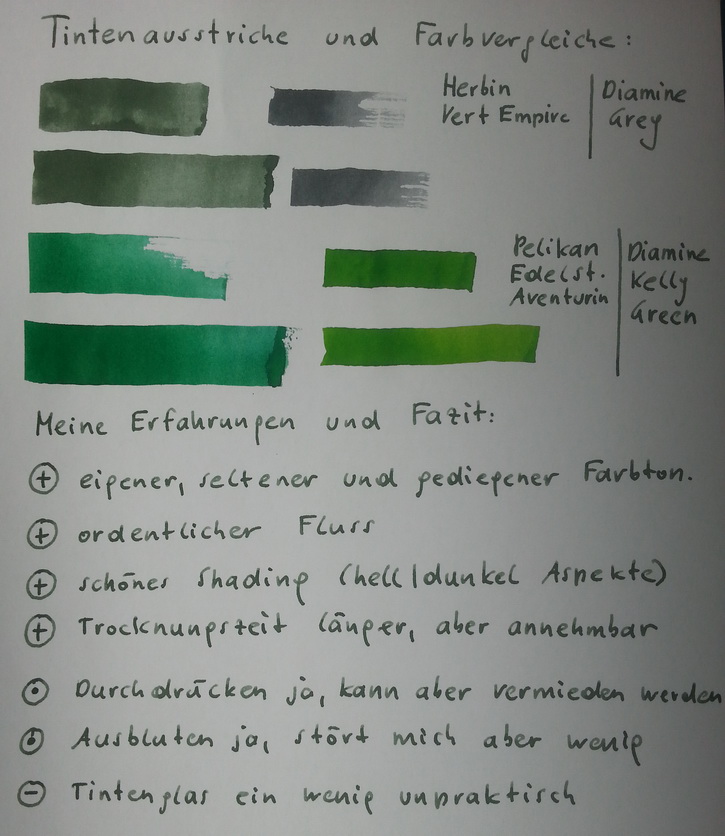 Tintenausstriche und Farbvergleiche:
Herbin
Vert Empire
Diamine
Grey
Pelikan
Edelst.
Aventurin
Diamine
Kelly
Green
Meine Erfahrungen und Fazit:
⊕ eigener, seltener und gediegener Farbton.
⊕ ordentlicher Fluss
⊕ schönes Shading (hell/dunkel Aspekte)
⊕ Trocknungszeit länger, aber annehmbar
⊙ Durchdrücken ja, kann aber vermieden werden
⊙ Ausbluten ja, stört mich aber wenig
⊖ Tintenglas ein wenig unpraktisch